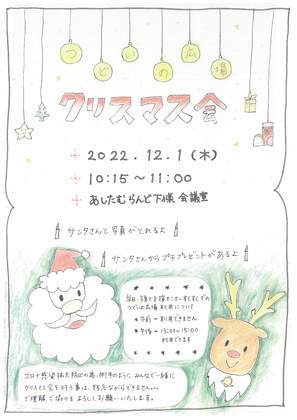 つどいの広場
クリスマス会
2022.12.1(木)
10:15～11:00
あしたむらんど下條 会議室
サンタさんと写真がとれるよ
サンタさんからプチプレゼントがあるよ
つどいの広場
午前…利用できません
午後…13:00～15:00
利用できます
コロナ感染拡大防止の為、例年のように みんなで一緒に
クリスマス会を行う事は、残念ながらできません。
ご理解 ご協力を よろしくお願いいたします。